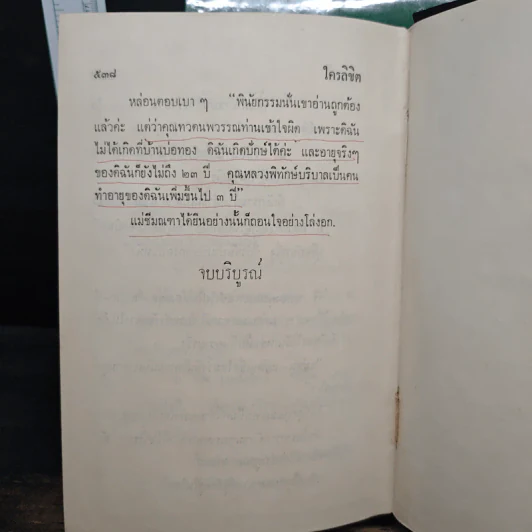 ๕๓๘ ใครลิขิต
หล่อนตอบเบา ๆ “พินัยกรรมนั่นเขาอ่านถูกต้อง
แล้วค่ะ แต่ว่าคุณทวดนพวรรณท่านเข้าใจผิด เพราะดิฉัน
ไม่ได้เกิดที่บ้านบ่อทอง ดิฉันเกิดปักษ์ใต้ค่ะ และอายุจริงๆ
ของดิฉันก็ยังไม่ถึง ๒๓ ปี คุณหลวงพิทักษ์บริบาลเป็นคน
ทำอายุของดิฉันเพิ่มขึ้นไป ๓ ปี”
แม่ชีมณฑาได้ยินอย่างนั้นก็ถอนใจอย่างโล่งอก.
จบบริบูรณ์